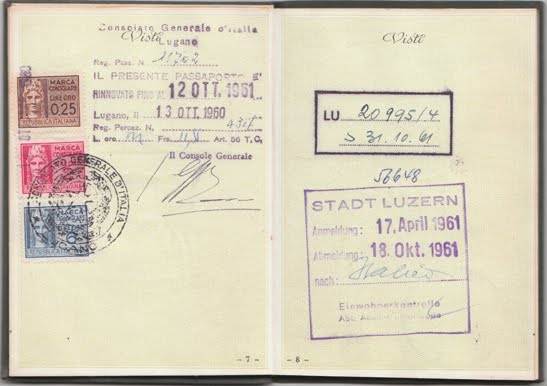 Consolato Generale d'Italia
Visti
Lugano
Reg. Pass. N. 11702
IL PRESENTE PASSAPORTO E'
RINNOVATO FINO AL 12 OTT. 1961
Lugano, li 13 OTT. 1960
Reg. Percez. N.
L. oro Frs. Art. 56 T.C.
Il Console Generale
MARCA
CONSOLARE
LIRE ORO
0,25
REPUBBLICA ITALIANA
MARCA
CONSOLARE
MARCA
CONSOLARE
CONSOLATO GENERALE D'ITALIA
LUGANO
- 7 -
Visti
LU 20995/4
S 31.10.61
56648
STADT LUZERN
Anmeldung: 17. April 1961
Abmeldung: 18. Okt. 1961
nach: Italien
Einwohnerkontrolle
- 8 -